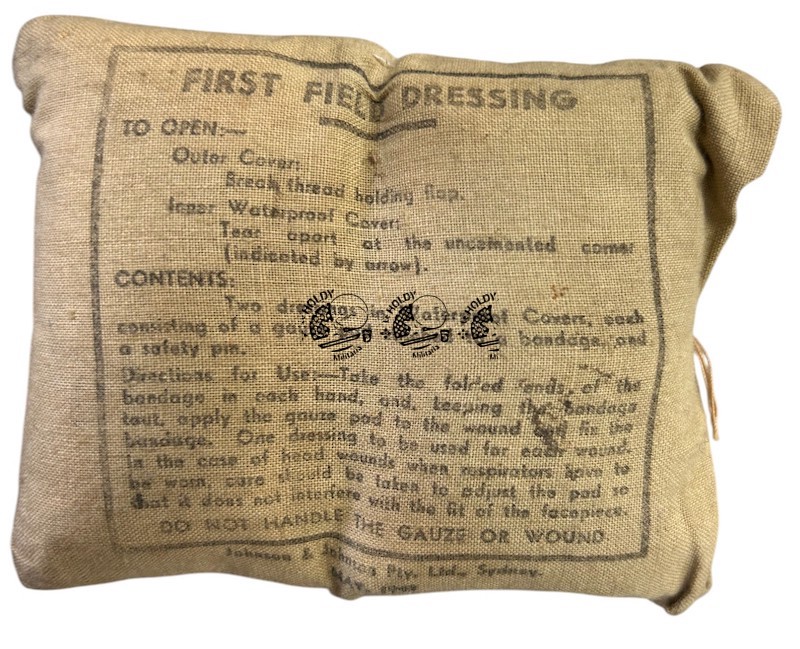 FIRST FIELD DRESSING
TO OPEN:—
Outer Cover:
Break thread holding flap.
Inner Waterproof Cover:
Tear apart at the uncemented corner
(indicated by arrow).
CONTENTS:
Two dressings in Waterproof Covers, each
consisting of a a bandage, and
a safety pin.
Directions for Use:—Take the folded ends of the
bandage in each hand, and, keeping the bandage
taut, apply the gauze pad to the wound and fix the
bandage. One dressing to be used for each wound.
In the case of head wounds when respirators have to
be worn, care should be taken to adjust the pad so
that it does not interfere with the fit of the facepiece.
DO NOT HANDLE THE GAUZE OR WOUND
Johnson & Johnson Pty. Ltd., Sydney.
MAY.
HOLDY
Militaria
HOLDY
Militaria
HOLDY